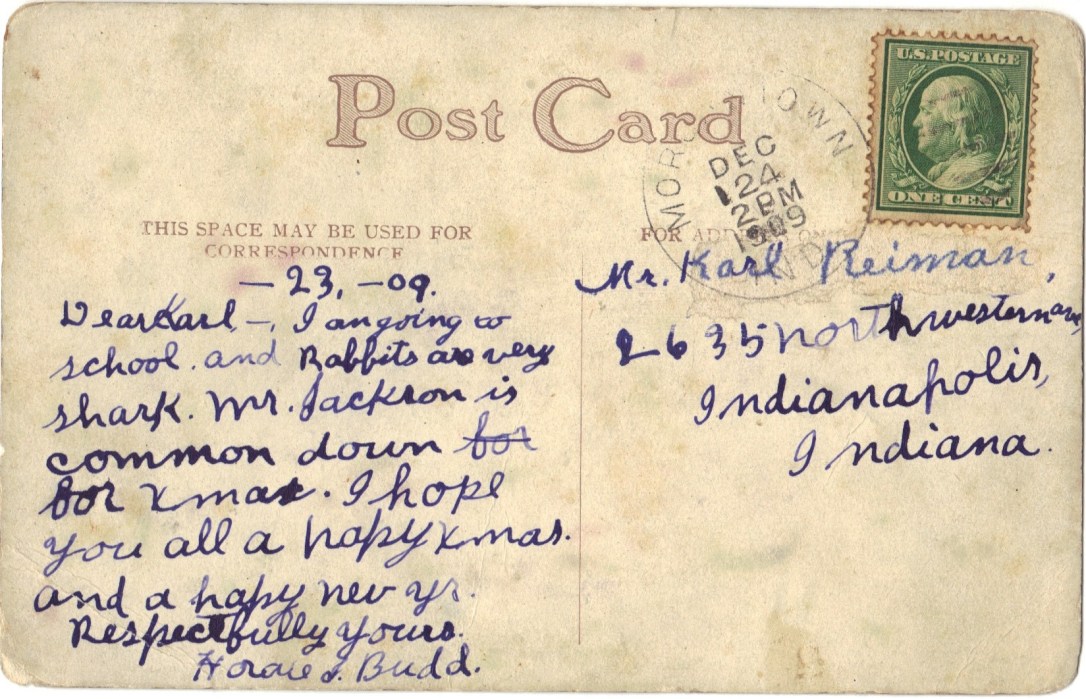 Post Card
U.S.POSTAGE
ONE CENT
MOR OWN
DEC
24
2PM
1909
IND
THIS SPACE MAY BE USED FOR
CORRESPONDENCE
FOR ADD ON
— 23, – 09.
Dear Karl —, I an going to
school. and Rabbits are very
shark. Mr. Jackson is
common down for
for Xmas. I hope
you all a hapy Xmas.
and a hapy nev yr.
Respectfully yours.
Horace J. Budd.
Mr. Karl Reiman,
2635 northwestern ave,
Indianapolis,
Indiana.